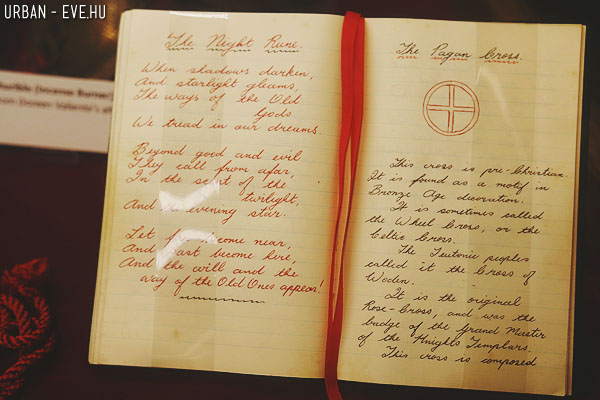 URBAN - EVE.HU
The Night Rune.
When shadows darken,
And starlight gleams,
The ways of the Old
Gods
We tread in our dreams.
Beyond good and evil
They call from afar,
In the scent of the
twilight,
And evening star.
Let come near,
And past become here,
And the will and the
way of the Old Ones appear!
The Pagan Cross.
This cross is pre-Christian.
It is found as a motif in
Bronze Age decoration.
It is sometimes called
the Wheel Cross, or the
Celtic Cross.
The Teutonic peoples
called it the Cross of
Woden.
It is the original
Rose-Cross, and was the
badge of the Grand Master
of the Knights Templars.
This cross is composed
(Incense Burner)
from Doreen Valiente's